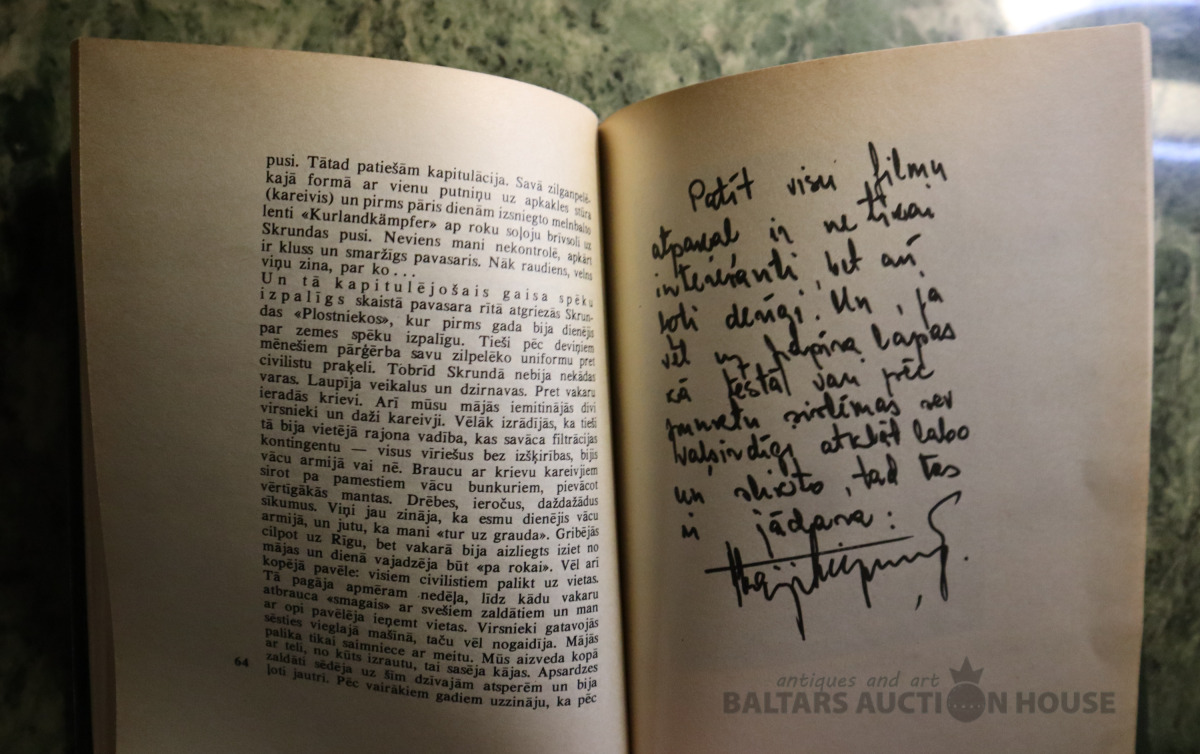 pusi. Tātad patiešām kapitulācija. Savā zilganpelē-
kajā formā ar vienu putniņu uz apkakles stūra
(kareivis) un pirms pāris dienām izsniegto melnbalto
lenti «Kurlandkämpfer» ap roku soļoju brīvsolī uz
Skrundas pusi. Neviens mani nekontrolē, apkārt
ir kluss un smaržīgs pavasaris. Nāk raudiens, velns
viņu zina, par ko...
Un tā kapitulējošais gaisa spēku
izpalīgs skaistā pavasara rītā atgriezās Skrun-
das «Plostniekos», kur pirms gada bija dienējis
par zemes spēku izpalīgu. Tieši pēc deviņiem
mēnešiem pārģērba savu zilpelēko uniformu pret
civilistu praķeli. Tobrīd Skrundā nebija nekādas
varas. Laupīja veikalus un dzirnavas. Pret vakaru
ieradās krievi. Arī mūsu mājās iemitinājās divi
virsnieki un daži kareivji. Vēlāk izrādījās, ka tieši
tā bija vietējā rajona vadība, kas savāca filtrācijas
kontingentu — visus vīriešus bez izšķirības, bijis
vācu armijā vai nē. Braucu ar krievu kareivjiem
sirot pa pamestiem vācu bunkuriem, pievācot
vērtīgākās mantas. Drēbes, ieročus, daždažādus
sīkumus. Viņi jau zināja, ka esmu dienējis vācu
armijā, un jutu, ka mani «tur uz grauda». Gribējās
cilpot uz Rīgu, bet vakarā bija aizliegts iziet no
mājas un dienā vajadzēja būt «pa rokai». Vēl arī
kopējā pavēle: visiem civilistiem palikt uz vietas.
Tā pagāja apmēram nedēļa, līdz kādu vakaru
atbrauca «smagais» ar svešiem zaldātiem un man
ar opi pavēlēja ieņemt vietas. Virsnieki gatavojās
sēsties vieglajā mašīnā, taču vēl nogaidīja. Mājās
palika tikai saimniece ar meitu. Mūs aizveda kopā
ar teli, no kūts izrautu, tai sasēja kājas. Apsardzes
zaldāti sēdēja uz šīm dzīvajām atsperēm un bija
ļoti jautri. Pēc vairākiem gadiem uzzināju, ka pēc
64
Patīt visu filmu
atpakaļ ir ne tikai
interesanti, bet arī
ļoti derīgi. Un, ja
vēl uz papīra lapas
kā testā vari pēc
punktu sistēmas sev
vaļsirdīgi atklāt labo
un slikto, tad tas
ir jādara:
antiques and art
BALTARS AUCTION HOUSE